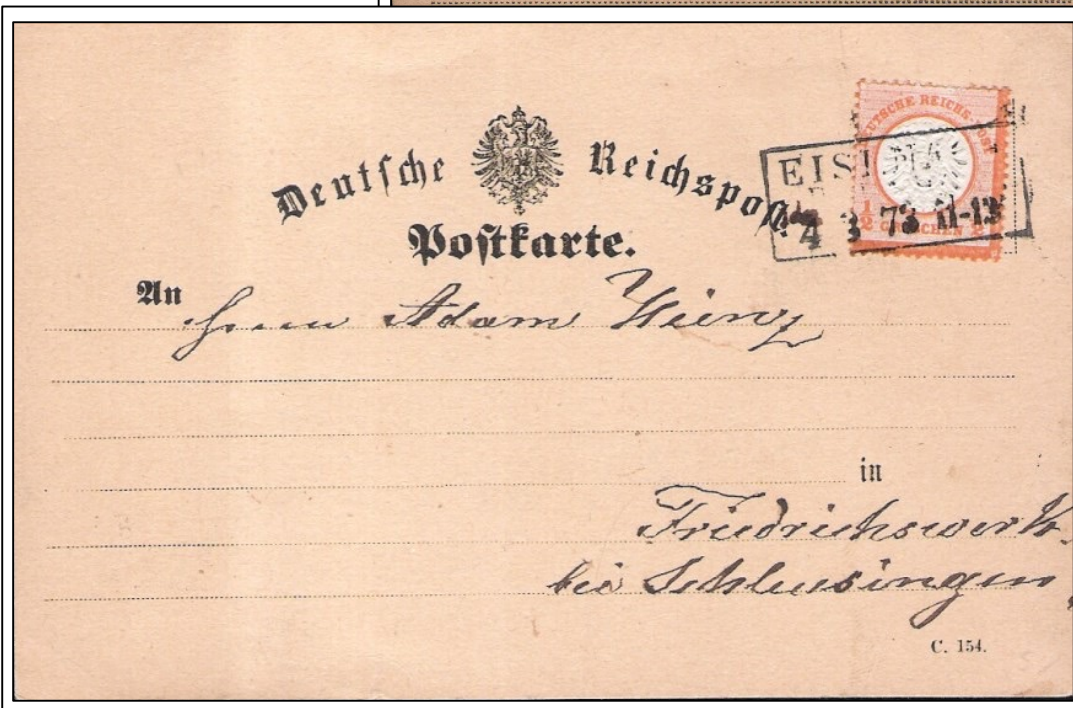 Deutsche Reichspost
Postkarte.
DEUTSCHE REICHS-POST
½ GROSCHEN ½
4 3 73
An Herrn Adam Heinz
in
Friedrichswerk
bei Schleusingen
C. 154.